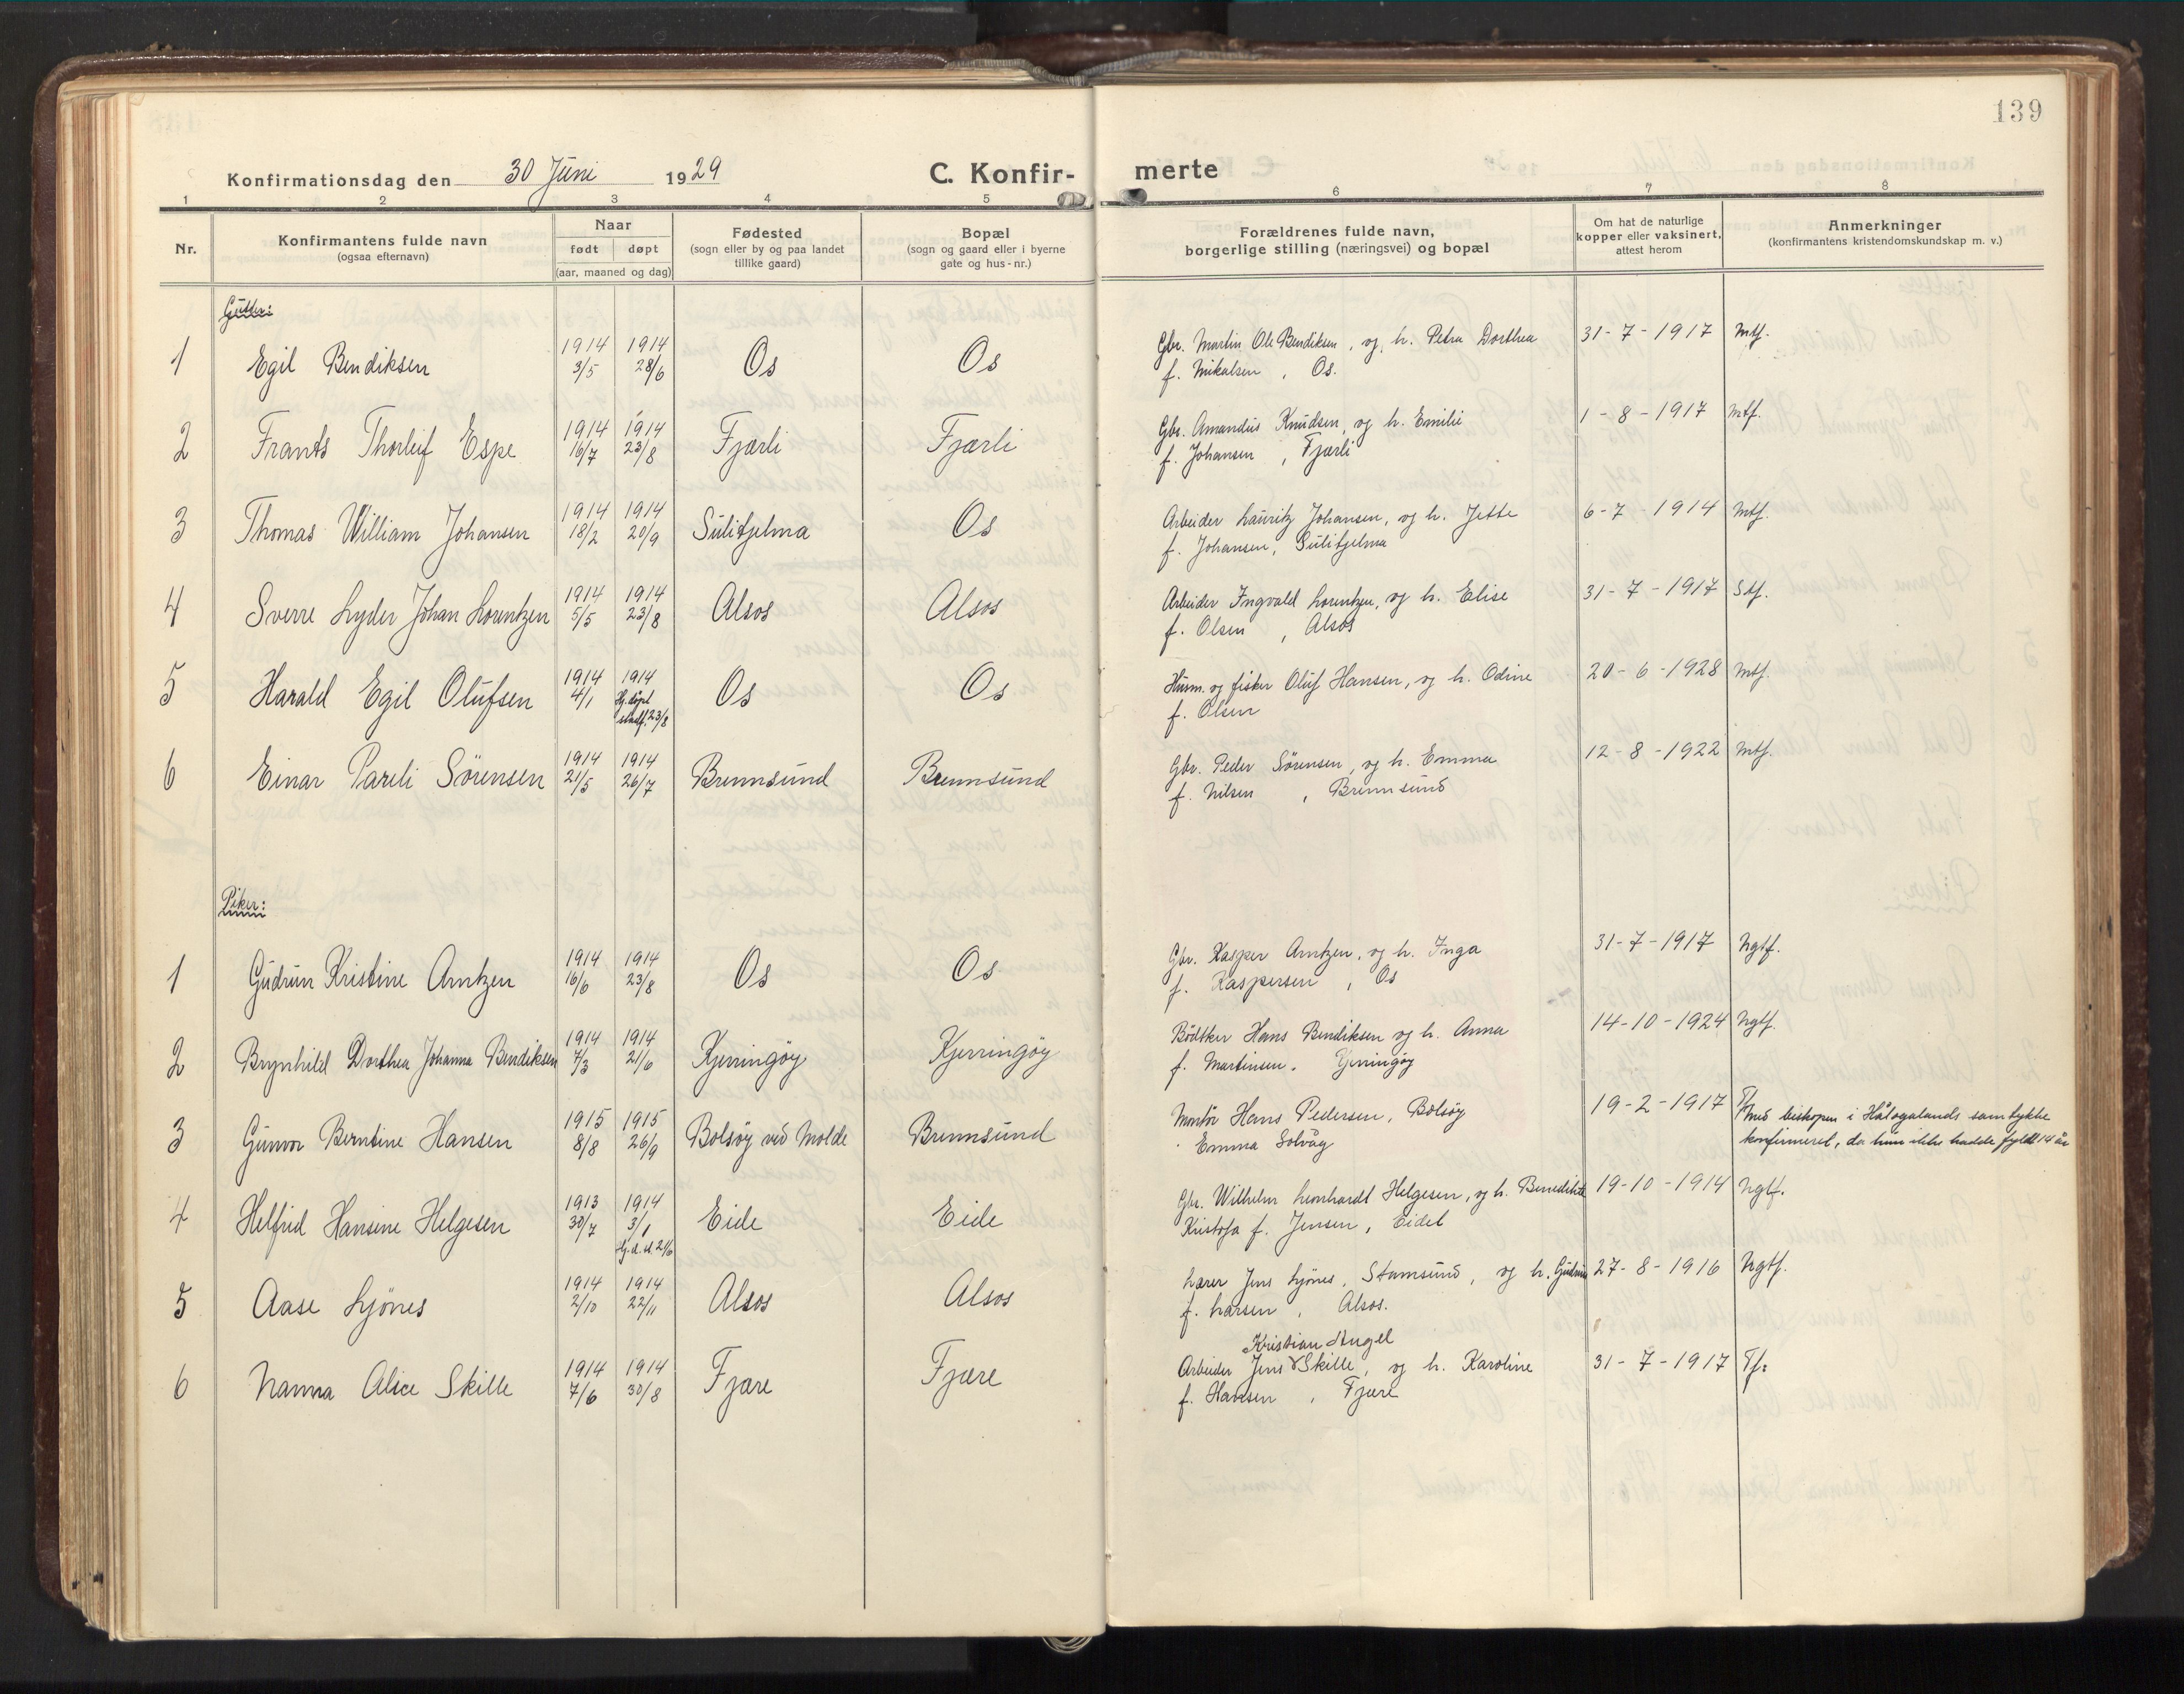 139
Konfirmationsdag den 30 Juni 1929 C. Konfir-merte
1 2 3 4 5 6 7 8
Nr. Konfirmantens fulde navn (ogsaa efternavn) Naar født døpt (aar, maaned og dag) Fødested (sogn eller by og paa landet tillike gaard) Bopæl (sogn og gaard eller i byerne gate og hus-nr.) Forældrenes fulde navn, borgerlige stilling (næringsvei) og bopæl Om hat de naturlige kopper eller vaksinert, attest herom Anmerkninger (konfirmantens kristendomskundskap m. v.)
Gutter:
1 Egil Bendiksen 1914 3/5 1914 28/6 Os Os Gbr. Martin Ole Bendiksen, og h. Petra Dorthea 31-7-1917 Mtf.
f. Mikalsen, Os.
2 Frants Thorleif Espe 1914 16/7 1914 23/8 Fjærli Fjærli Gbr. Amandus Knudsen, og h. Emilie 1-8-1917 Mtf.
f. Johansen, Fjærli
3 Thomas William Johansen 1914 18/2 1914 20/9 Sulitjelma Os Arbeider Lauritz Johansen, og h. Jette 6-7-1914 Mtf.
f. Johansen, Sulitjelma
4 Sverre Lyder Johan Lorentzen 1914 5/5 1914 23/8 Alsos Alsos Arbeider Ingvald Lorentzen, og h. Elise 31-7-1917 Stf.
f. Olsen, Alsos
5 Harald Egil Olufsen 1914 4/1 1914 Hj. døpt stadf. 23/8 Os Os Husm. og fisker Oluf Hansen, og h. Odine 20-6-1928 Mtf.
f. Olsen
6 Einar Pareli Sörensen 1914 21/5 1914 26/7 Brennsund Brennsund Gbr. Peder Sörensen, og h. Emma 12-8-1922 Mtf.
f. Nilsen, Brennsund
Piker:
1 Gudrun Kristine Arntzen 1914 16/6 1914 23/8 Os Os Gbr. Kasper Arntzen, og h. Inga 31-7-1917 Ngtf.
f. Kaspersen, Os
2 Brynhild Dorthea Johanna Bendiksen 1914 7/3 1914 21/6 Kjerringøy Kjerringøy Bödtker Hans Bendiksen og h. Anna 14-10-1924 Ngtf.
f. Martinsen. Kjerringøy
3 Gunvor Berntine Hansen 1915 8/8 1915 26/9 Bolsöy ved Molde Brennsund Montör Hans Pedersen, Bolsöy 19-2-1917 Tf. Med biskopen i Hålogalands samtykke
Emma Solvåg konfirmeret, da hun ikke hadde fyldt 14 år
4 Helfrid Hansine Helgesen 1913 30/7 1914 3/1 Hj. d. st. 21/6 Eide Eide Gbr. Wilhelm Leonhardt Helgesen, og h. Benedikte 19-10-1914 Ngtf.
Kristofa f. Jensen, Eidet
5 Aase Lyönes 1914 2/10 1914 22/11 Alsos Alsos Lærer Jens Lyönes, Stamsund, og h. Gudrun 27-8-1916 Ngtf.
f. Larsen, Alsos.
Kristian Angel
6 Nanna Alice Skille 1914 7/6 1914 30/8 Fjære Fjære Arbeider Jens Skille, og h. Karoline 31-7-1917 Tf.
f. Hansen, Fjære